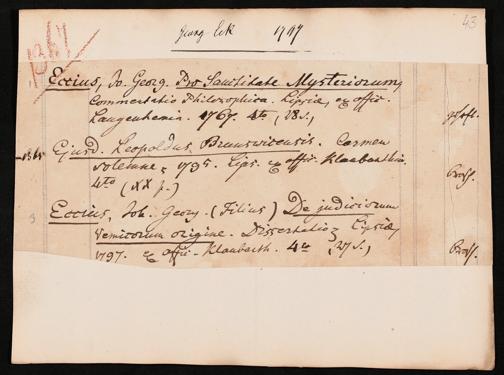 Georg Eck 1797
43
Eccius, Jo. Georg. Pro Sanctitate Mysteriorum,
Commentatio Philosophica. Lipsiae, ex offic.
Langenhemia. 1767. 4to (28 S.)
Ejusd. Leopoldus Brunsvicensis. Carmen
solemne, 1785. Lips. ex offic. Klaubarthia.
4to (XX p.)
Brosch.
Eccius, Joh. Georg. (Filius) De judiciorum
Vemicorum origine. Dissertatio, Lipsiae,
1797. ex offic. Klaubarth. 4to (27 S.)
Brosch.